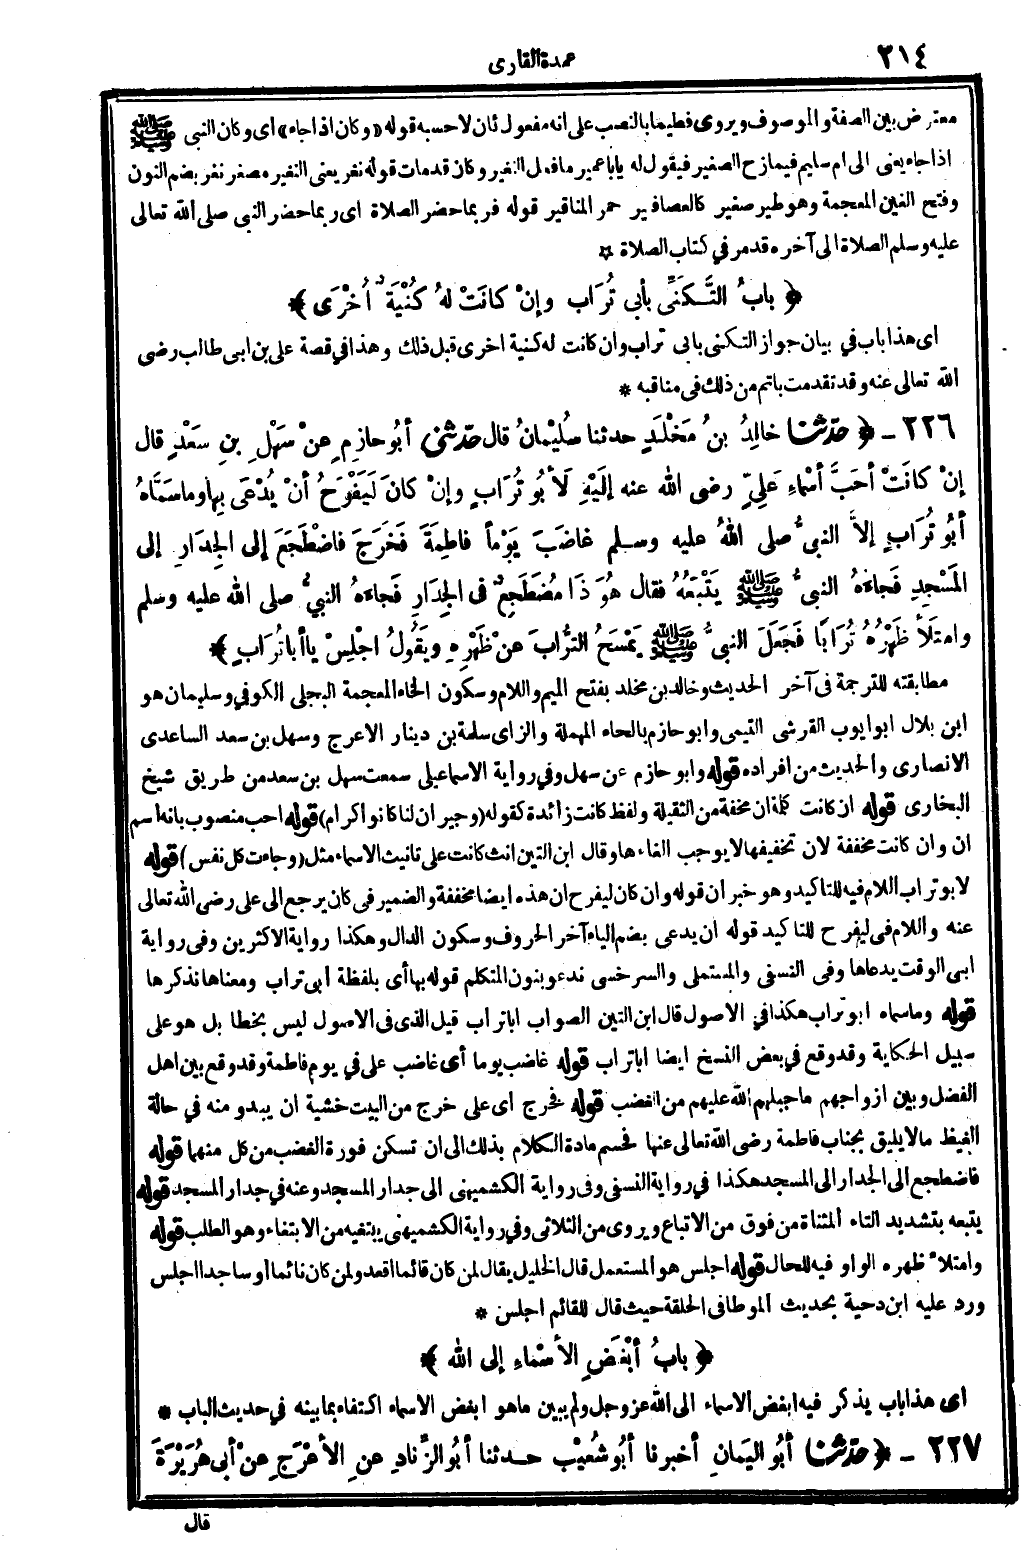 ٢١٤
عمدة القارى
معترض بين الصفة والموصوف ويروى فطيما بالنصب على انه مفعول ثان لاحسبه قوله «وكان اذا جاء» اى وكان النبى ﷺ
اذا جاء يعنى الى ام سليم فيمازح الصغير فيقول له ياابا عمير مافعل النغير وكان قدمات قوله نغر يعنى النغير مصغر نغر بضم النون
وفتح الغين المعجمة وهو طير صغير كالعصافير حمر المناقير قوله فربما حضر الصلاة اى ربما حضر النبى صلى الله تعالى
عليه وسلم الصلاة الى آخره قدمر في كتاب الصلاة ☆
﴿ بابُ التَّكَنِّي بأبي تُرَاب وإنْ كانَتْ لهُ كُنْيَةٌ أُخْرَى ﴾
اى هذا باب في بيان جواز التكنى بابى تراب وان كانت له كنية اخرى قبل ذلك وهذا في قصة على بن ابى طالب رضى
الله تعالى عنه وقد تقدمت باتم من ذلك فى مناقبه *
٢٢٦ - ﴿ حدّثنا خالِدُ بنُ مَخْلَدٍ حدثنا سُلَيْمانُ قال حدّثني أبُو حازِمٍ عنْ سَهْلِ بنِ سَعْدٍ قال
إنْ كانَتْ أحَبَّ أسْماءِ عَلِيٍّ رضى الله عنه إلَيْهِ لَأبُو تُرَابٍ وإنْ كانَ لَيَفْرَحُ أنْ يُدْعَى بِها وماسَمَّاهُ
أبُو تُرَابٍ إلاَّ النبيُّ صلى اللهُ عليه وسلم غاضَبَ يَوْماً فاطِمَةَ فَخَرَجَ فاضْطَجَعَ إلى الجِدَارِ إلى
المَسْجِدِ فَجاءَهُ النبيُّ ﷺ يَتْبَعُهُ فقال هُوَ ذَا مُضْطَجِعٌ فى الجِدَارِ فَجاءَهُ النبيُّ صلى الله عليه وسلم
وامتَلَأَ ظَهْرُهُ تُرَابًا فَجَعَلَ النبيُّ ﷺ يَمْسَحُ التُّرابَ عنْ ظَهْرِهِ ويَقُولُ اجْلِسْ ياأبا تُرَابٍ ﴾
مطابقته للترجمة فى آخر الحديث وخالد بن مخلد بفتح الميم واللام وسكون الخاء المعجمة البجلى الكوفي وسليمان هو
ابن بلال ابو ايوب القرشى التيمى وابو حازم بالحاء المهملة والزاى سلمة بن دينار الاعرج وسهل بن سعد الساعدى
الانصارى والحديث من افراده قوله وابو حازم عن سهل وفي رواية الاسماعيلى سمعت سهل بن سعد من طريق شيخ
البخارى قوله ان كانت كلمة ان مخففة من الثقيلة ولفظ كانت زائدة كقوله (وجيران لنا كانوا كرام) قوله احب منصوب بانه اسم
ان وان كانت مخففة لان تخفيفها لا يوجب الغاءها وقال ابن التين انث كانت على تانيث الاسماء مثل (وجاءت كل نفس) قوله
لابو تراب اللام فيه للتاكيد وهو خبر ان قوله وان كان ليفرح ان هذه ايضا مخففة والضمير فى كان يرجع الى على رضى الله تعالى
عنه واللام فى ليفرح للتاكيد قوله ان يدعى بضم الياء آخر الحروف وسكون الدال وهكذا رواية الاكثرين وفى رواية
ابى الوقت يدعاها وفى النسفى والمستملى والسرخسى ندعو بنون المتكلم قوله بها أى بلفظة ابى تراب ومعناها نذكرها
قوله وماسماه ابو تراب هكذا في الاصول قال ابن التين الصواب اباتراب قيل الذى فى الاصول ليس بخطا بل هو على
سبيل الحكاية وقد وقع في بعض النسخ ايضا اباتراب قوله غاضب يوما أى غاضب على في يوم فاطمة وقد وقع بين اهل
الفضل وبين ازواجهم ماجبلهم الله عليهم من الغضب قوله فخرج اى على خرج من البيت خشية ان يبدو منه في حالة
الغيظ مالا يليق بجناب فاطمة رضى الله تعالى عنها فحسم مادة الكلام بذلك الى ان تسكن فورة الغضب من كل منهما قوله
فاضطجع الى الجدار الى المسجد هكذا في رواية النسفى وفى رواية الكشميهنى الى جدار المسجد وعنه في جدار المسجد قوله
يتبعه بتشديد التاء المثناة من فوق من الاتباع ويروى من الثلاثى وفي رواية الكشميهنى يبتغيه من الابتغاء وهو الطلب قوله
وامتلأ ظهره الواو فيه للحال قوله اجلس هو المستعمل قال الخليل يقال لمن كان قائما اقعد ولمن كان نائما أو ساجدا اجلس
ورد عليه ابن دحية بحديث الموطا فى الحلقة حيث قال للقائم اجلس *
﴿ بابُ أبْغَضِ الأسْماءِ إلى الله ﴾
اى هذا باب يذكر فيه ابغض الاسماء الى الله عز وجل ولم يبين ماهو ابغض الاسماء اكتفاء بما بينه في حديث الباب *
٢٢٧ - ﴿ حدّثنا أبُو اليَمانِ أخبرنا أبُو شُعَيْب حدثنا أبُو الزِّنادِ عنِ الأعْرَجِ عنْ أبى هُرَيْرَةَ
قال